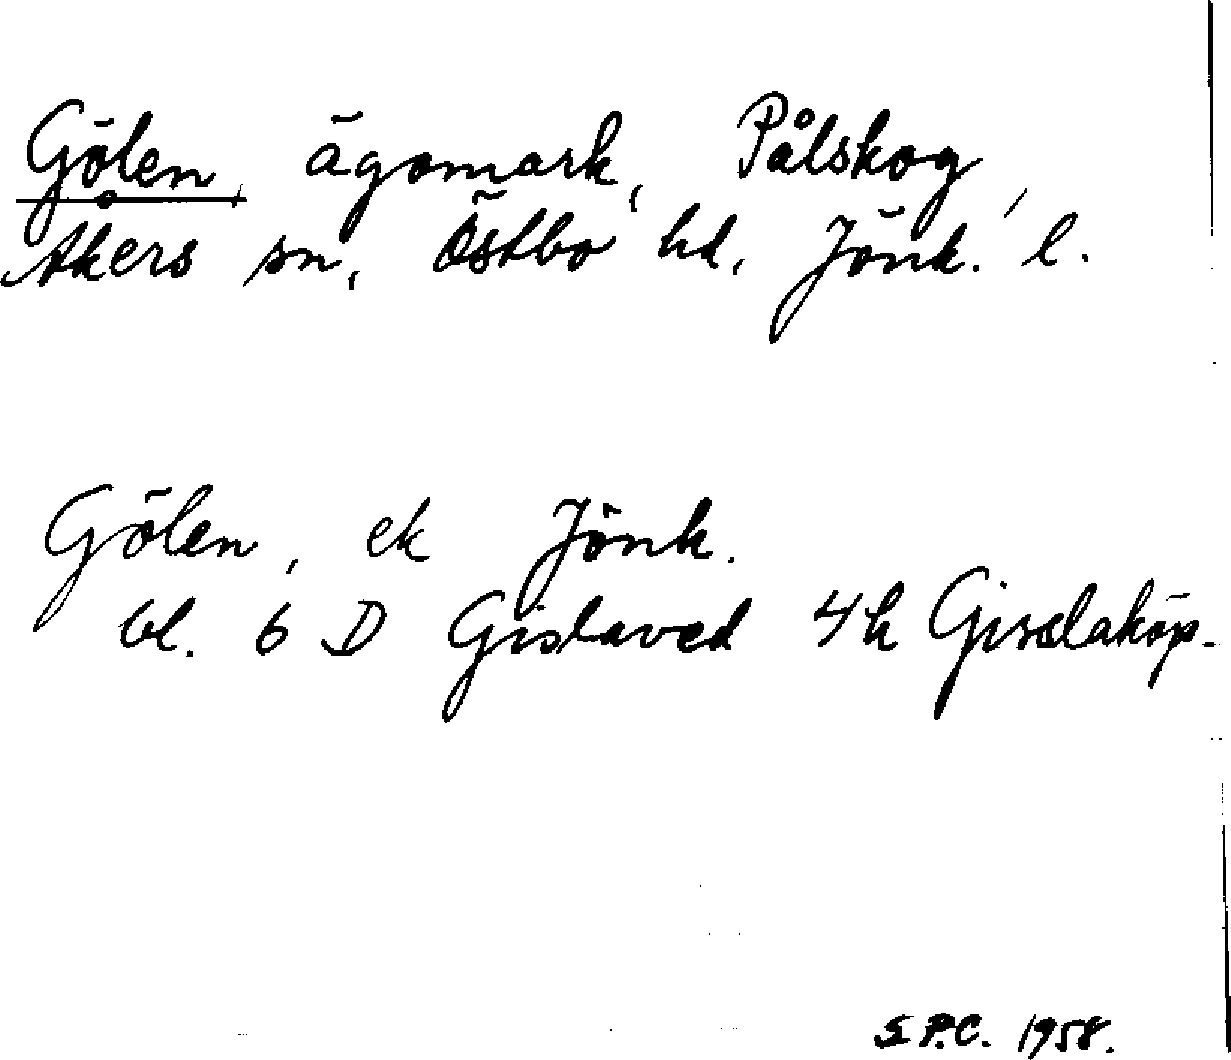 Gölen, ägomark, Pålskog,
Åkers sn, Östbo hd, Jönk. l.
Gölen, ek Jönk.
bl. 6 D Gislaved 4h Giselaköp.
S.P.C. 1958.